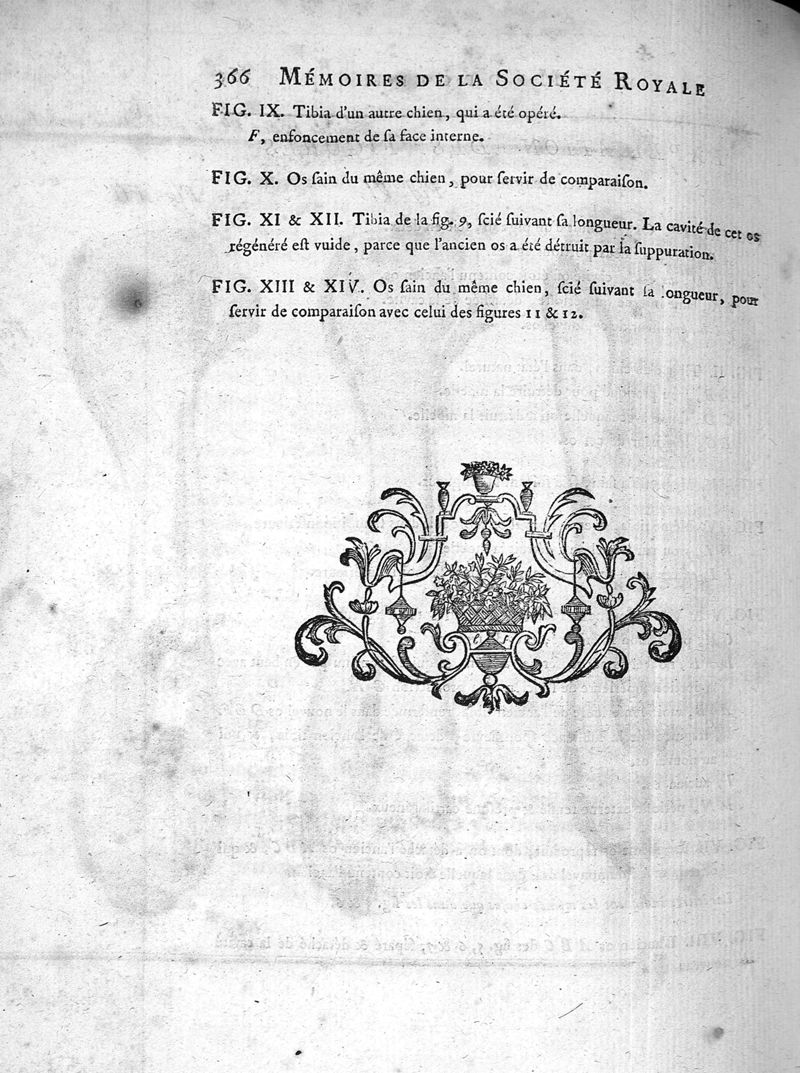 366 MÉMOIRES DE LA SOCIÉTÉ ROYALE
FIG. IX. Tibia d'un autre chien, qui a été opéré.
F, enfoncement de ſa face interne.
FIG. X. Os ſain du même chien, pour ſervir de comparaiſon.
FIG. XI & XII. Tibia de la fig. 9, ſcié ſuivant ſa longueur. La cavité de cet os
régénéré eſt vuide, parce que l'ancien os a été détruit par la ſuppuration.
FIG. XIII & XIV. Os ſain du même chien, ſcié ſuivant ſa longueur, pour
ſervir de comparaiſon avec celui des figures 11 & 12.